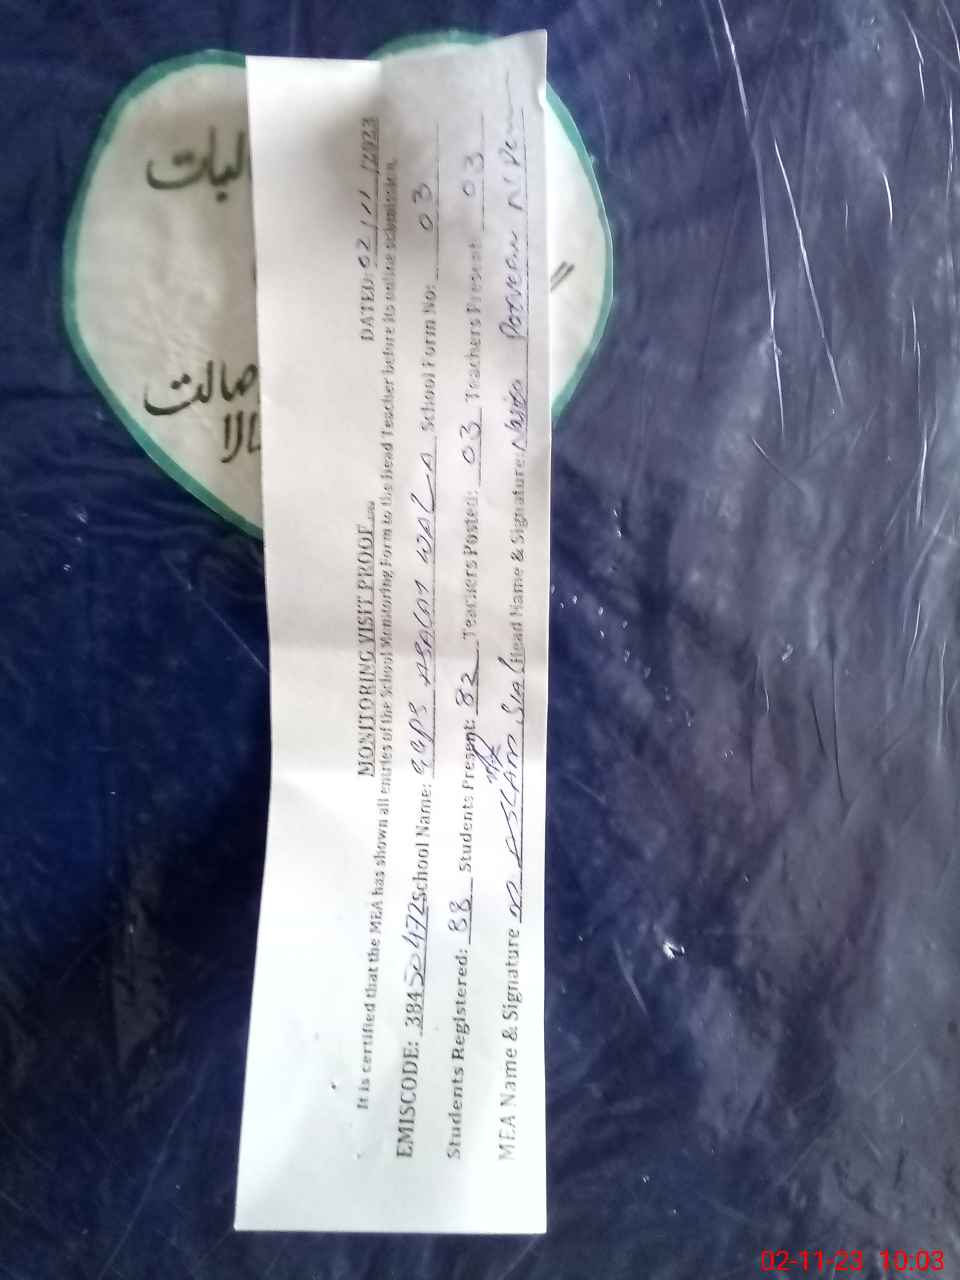 MONITORING VISIT PROOF
DATED: 02/11/2023
It is certified that the MEA has shown all entries of the School Monitoring Form to the Head Teacher before its online submission.
EMISCODE: 38450472 School Name: GGPS WALA School Form No: 03
Students Registered: 88 Students Present: 82 Teachers Posted: 03 Teachers Present 03
MEA Name & Signature ASLAM Head Name & Signature: Parveen
02-11-23 10:03